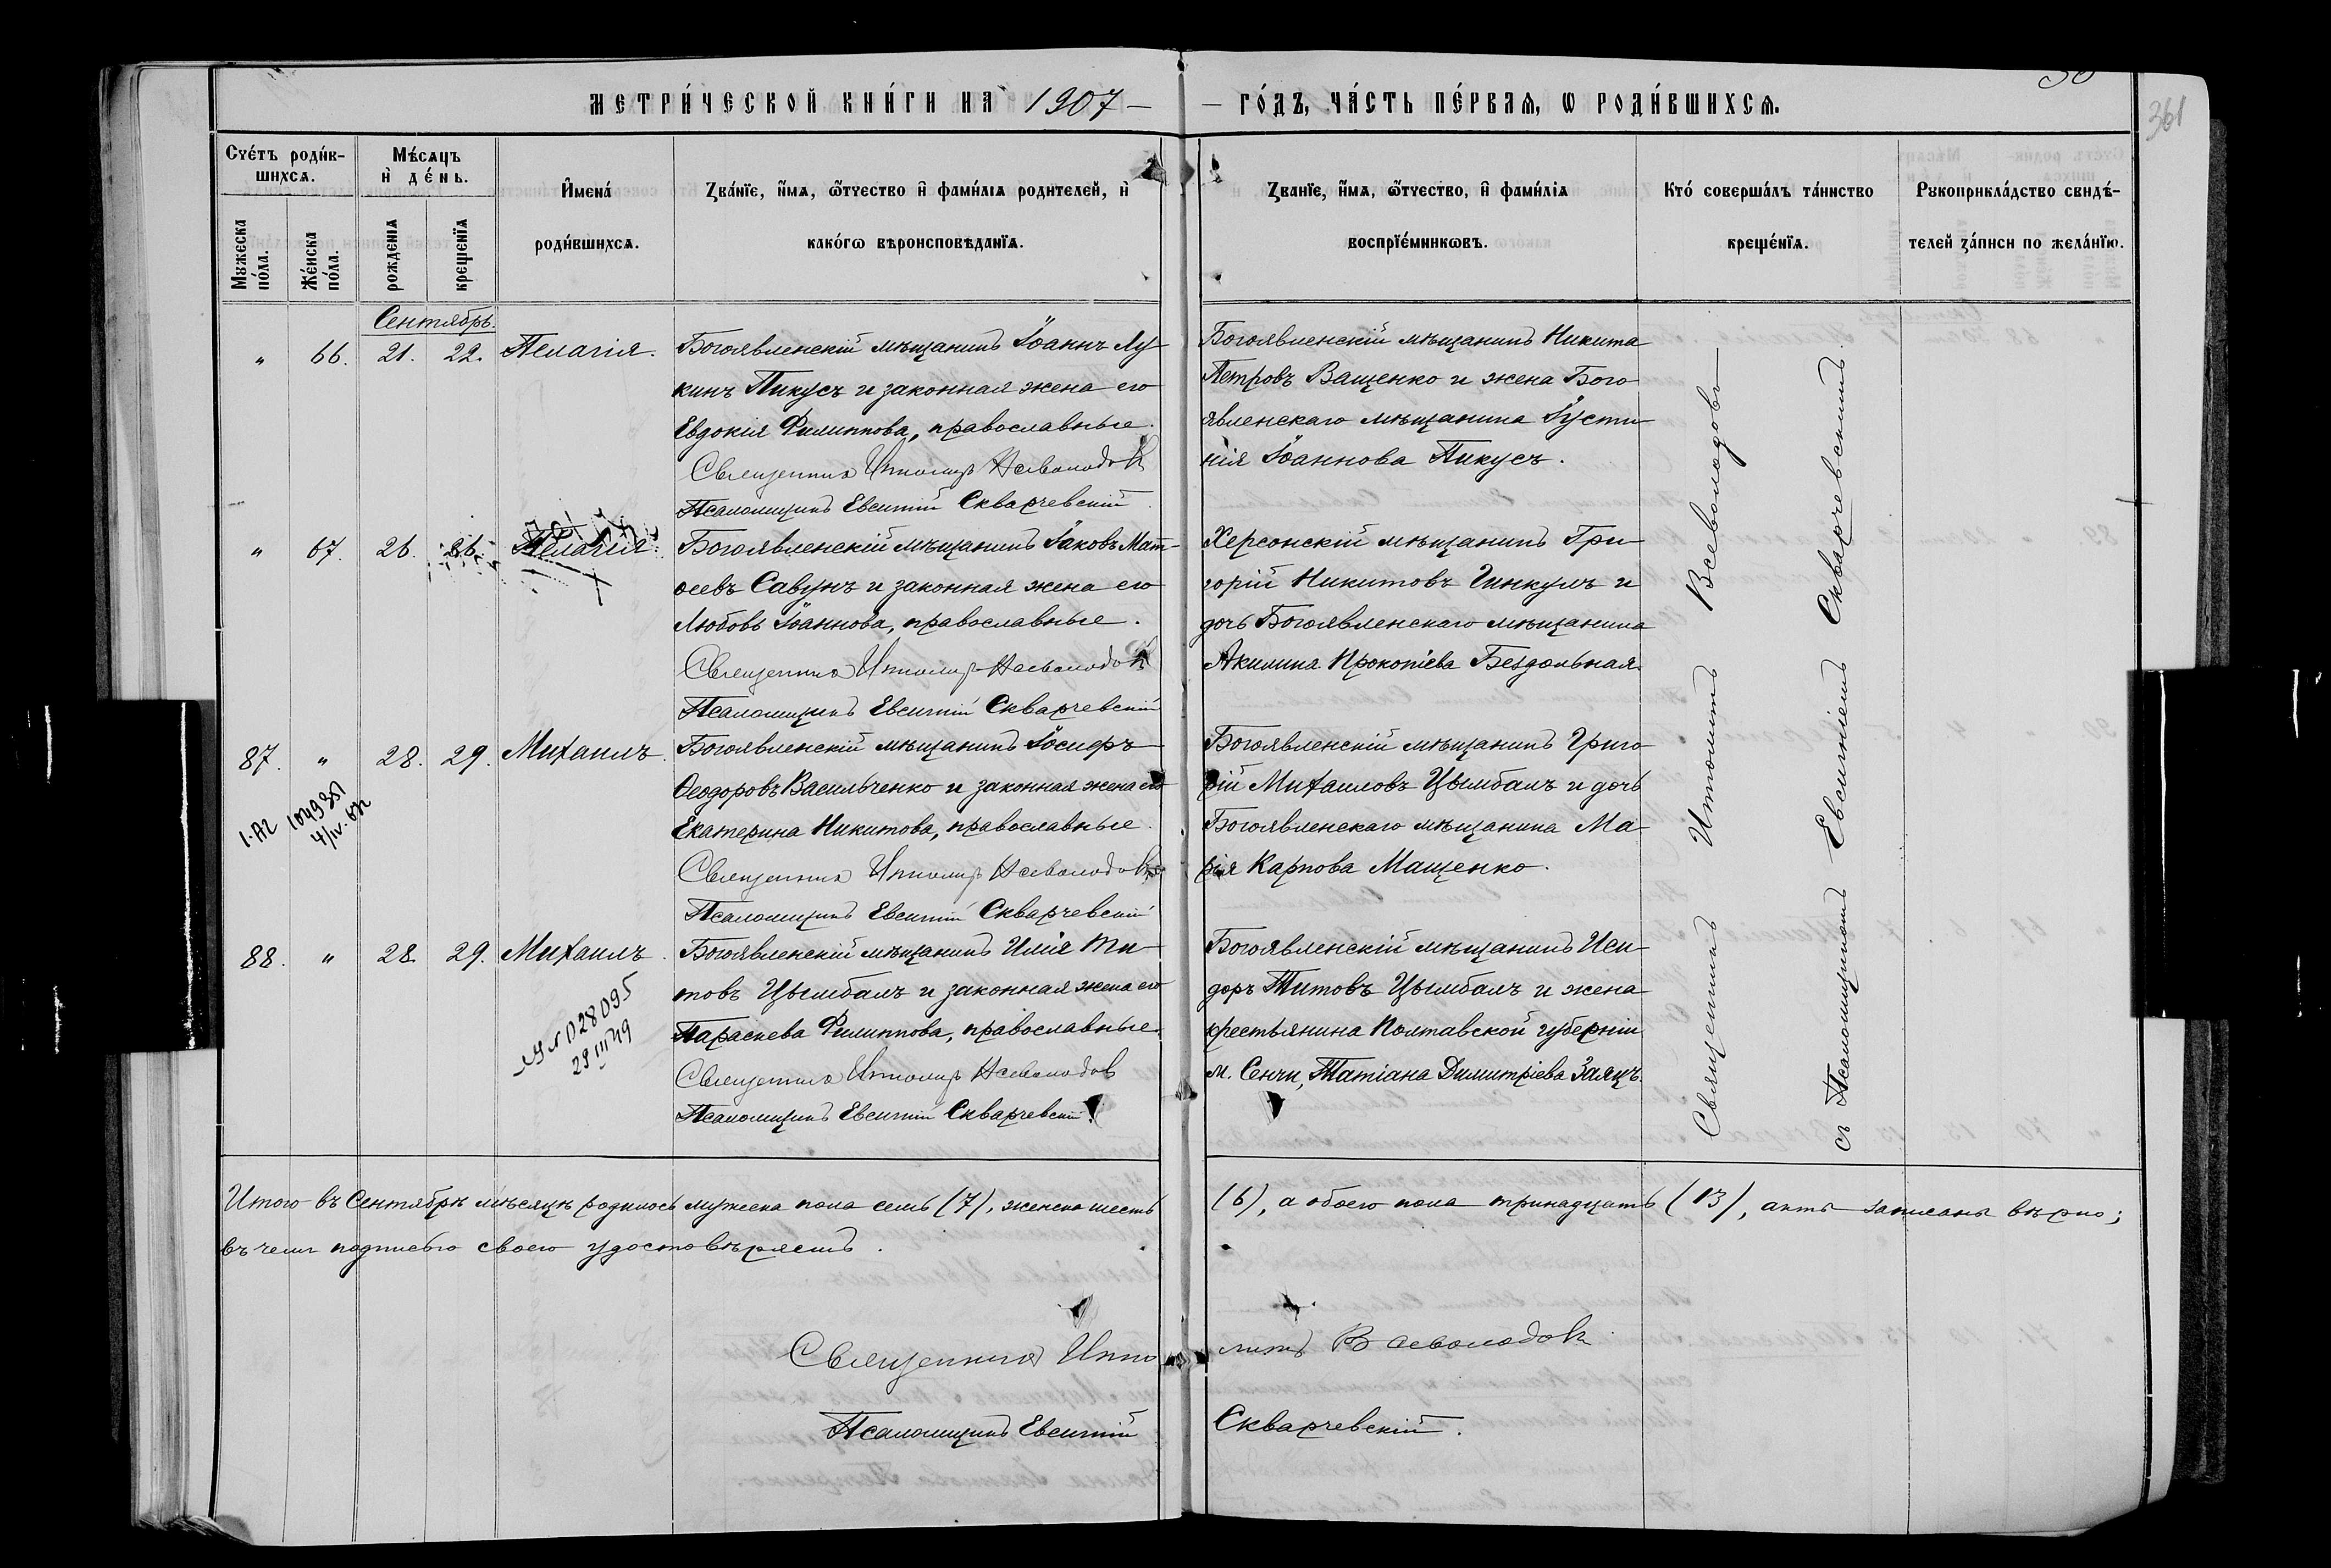 МЕТРИ́ЧЕСКОЙ КНИ́ГИ НА 1907 —
— ГО́ДЪ, ЧА́СТЬ ПЕ́РВАѦ, Ѡ РОДИ́ВШИХСѦ.
361
Сче́тъ роди́в-
шихсѧ.
Мужеска по́ла.
Же́нска по́ла.
Мѣ́сѧцъ
и҆ де́нь.
рожденїѧ
крещенїѧ
И҆мена́
роди́вшихсѧ.
Зва́нїе, и҆́мѧ, ѻ҆́тчество и҆ фами́лїѧ родителей, и҆
како́гѡ вѣроисповѣданїѧ.
Зва́нїе, и҆́мѧ, ѻ҆́тчество, и҆ фами́лїѧ
воспрїе́мникѡвъ.
Кто́ соверша́лъ та́инство
креще́нїѧ.
Рукоприкла́дство свидѣ́-
телей за́писи по жела́нїю.
Сентябрь.
" 66. 21. 22. Пелагія.
Богоявленскій мѣщанинъ Іоаннъ Лу-
кинъ Пикусъ и законная жена его
Евдокія Филиппова, православные.
Священникъ Ипполитъ Всеволодовъ
Псаломщикъ Евсигній Скварчевскій
Богоявленскій мѣщанинъ Никита
Петровъ Ващенко и жена Бого-
явленскаго мѣщанина Іусти-
нія Іоаннова Пикусъ.
" 67. 26. 26. Пелагія.
Богоявленскій мѣщанинъ Іаковъ Мат-
ѳеевъ Савунъ и законная жена его
Любовь Іоаннова, православные.
Священникъ Ипполитъ Всеволодовъ
Псаломщикъ Евсигній Скварчевскій
Херсонскій мѣщанинъ Гри-
горій Никитовъ Гинкулъ и
дочь Богоявленскаго мѣщанина
Акилина Прокопіева Бездольная
87. " 28. 29. Михаилъ.
Богоявленскій мѣщанинъ Іосифъ
Ѳеодоровъ Васильченко и законная жена его
Екатерина Никитова, православные.
Священникъ Ипполитъ Всеволодовъ
Псаломщикъ Евсигній Скварчевскій
Богоявленскій мѣщанинъ Григо-
рій Михаиловъ Цымбалъ и дочь
Богоявленскаго мѣщанина Ма-
рія Карпова Мащенко.
88. " 28. 29. Михаилъ.
028095
29 III 49
Богоявленскій мѣщанинъ Илія Ти-
товъ Цымбалъ и законная жена его
Параскева Филиппова, православные.
Священникъ Ипполитъ Всеволодовъ
Псаломщикъ Евсигній Скварчевскій
Богоявленскій мѣщанинъ Иси-
доръ Титовъ Цымбалъ и жена
крестьянина Полтавской губерніи
м. Сенчи, Татіана Димитріева Заяцъ.
Священникъ Ипполитъ Всеволодовъ
съ Псаломщикомъ Евсигніемъ Скварчевскимъ.
Итого въ Сентябрѣ мѣсяцѣ родилось мужеска пола семь (7), женска шесть
(6), а обоего пола тринадцать (13), акты записаны вѣрно;
въ чемъ подписью своею удостовѣряемъ.
Священникъ Иппо
литъ Всеволодовъ
Псаломщикъ Евсигній
Скварчевскій.